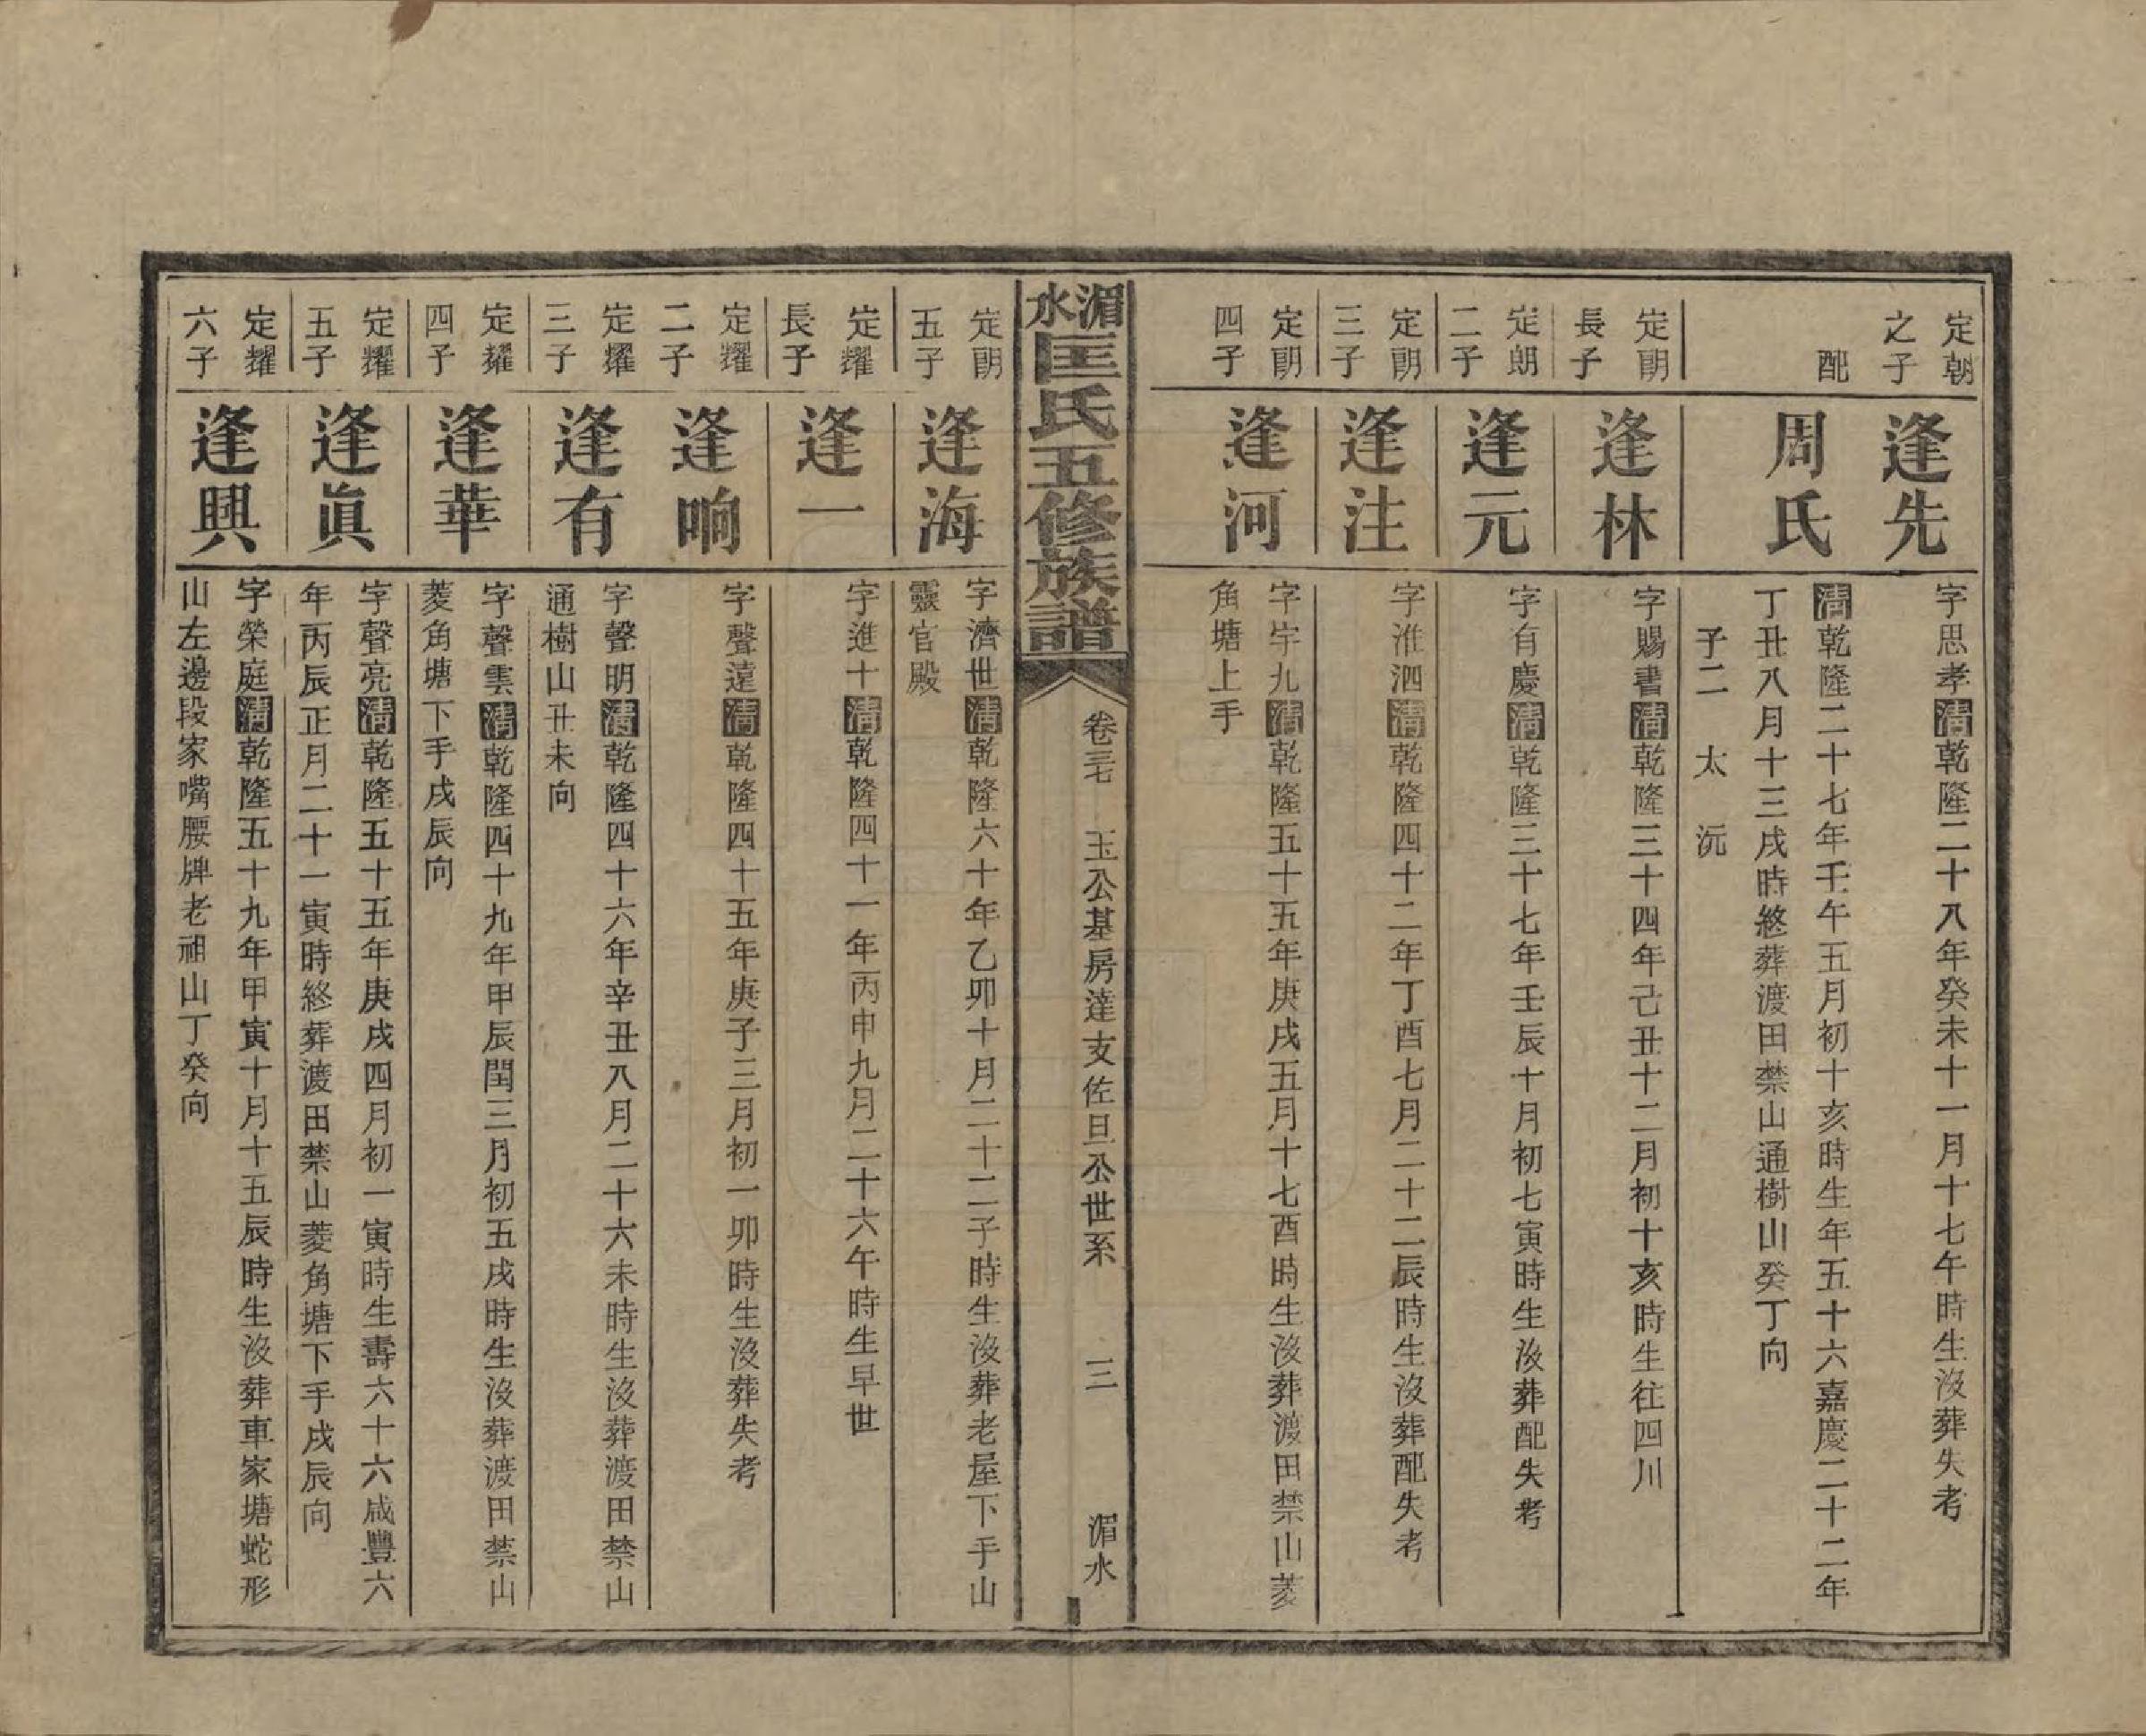 定朝
之子
逢先
字思孝清乾隆二十八年癸未十一月十七午時生沒葬失考
配
周氏
清乾隆二十七年壬午五月初十亥時生年五十六嘉慶二十二年
丁丑八月十三戌時終葬渡田禁山通樹山癸丁向
子二　太　沅
定朗
長子
逢林
字賜書清乾隆三十四年己丑十二月初十亥時生往四川
定朗
二子
逢元
字有慶清乾隆三十七年壬辰十月初七寅時生沒葬配失考
定朗
三子
逢注
字淮泗清乾隆四十二年丁酉七月二十二辰時生沒葬配失考
定朗
四子
逢河
字宇九清乾隆五十五年庚戌五月十七酉時生沒葬渡田禁山菱
角塘上手
湄水匡氏五修族譜
卷三七
玉公基房達支佐旦公世系
三
湄水
定朗
五子
逢海
字濟世清乾隆六十年乙卯十月二十二子時生沒葬老屋下手山
靈官殿
定耀
長子
逢一
字進十清乾隆四十一年丙申九月二十六午時生早世
定耀
二子
逢响
字聲遠清乾隆四十五年庚子三月初一卯時生沒葬失考
定耀
三子
逢有
字聲明清乾隆四十六年辛丑八月二十六未時生沒葬渡田禁山
通樹山丑未向
定耀
四子
逢華
字聲雲清乾隆四十九年甲辰閏三月初五戌時生沒葬渡田禁山
菱角塘下手戌辰向
定耀
五子
逢眞
字聲亮清乾隆五十五年庚戌四月初一寅時生壽六十六咸豐六
年丙辰正月二十一寅時終葬渡田禁山菱角塘下手戌辰向
定耀
六子
逢興
字榮庭清乾隆五十九年甲寅十月十五辰時生沒葬車家塘蛇形
山左邊段家嘴腰牌老祖山丁癸向